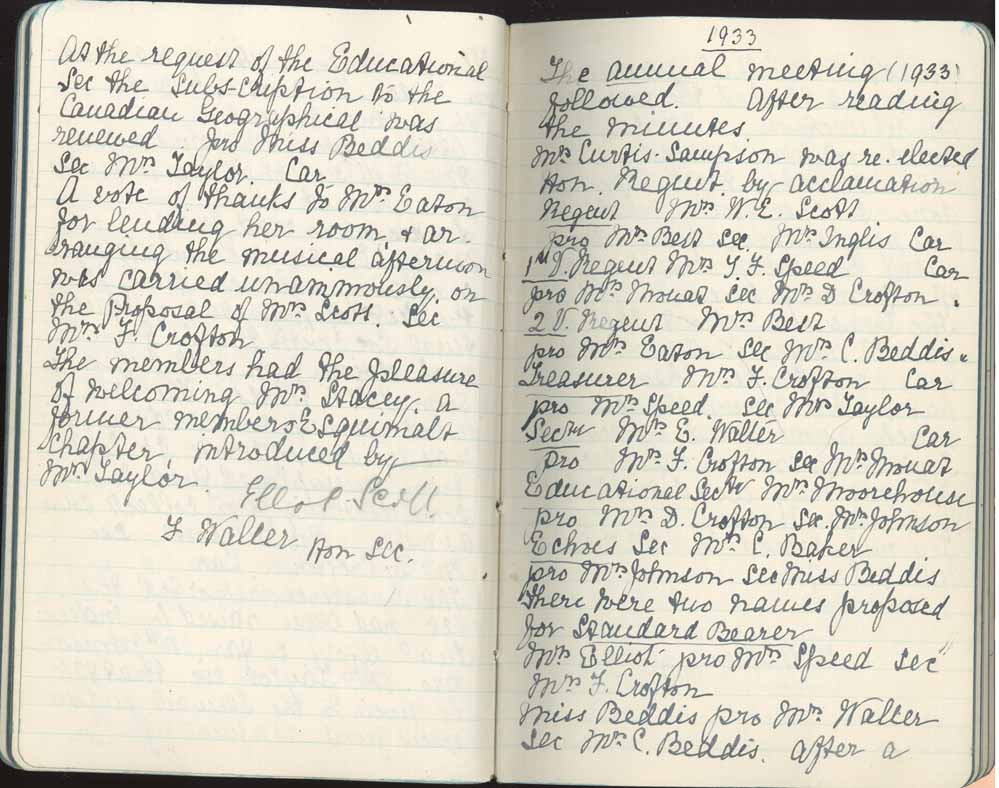 At the request of the Educational
Sec the Subscription to the
Canadian Geographical was
renewed pro Miss Beddis
Sec Mrs Taylor. Car
A vote of thanks to Mrs Eaton
for lending her room, & ar-
ranging the musical afternoon
was carried unanimously, on
the Proposal of Mrs Scott. Sec
Mrs F. Crofton
The members had the pleasure
of welcoming Mrs Stacey. a
former members Esquimalt
Chapter introduced by
Mrs Taylor.
Elliot Scott.
F Walter Hon Sec.
1933
The annual meeting (1933)
followed. After reading
the minutes.
Mrs Curtis-Sampson was re-elected
Hon. Regent. by acclamation
Regent Mrs W. E. Scott
pro Mrs Best Sec. Mrs Inglis Car
1st V. Regent Mrs J. F. Speed Car
pro Mrs Mouat Sec Mrs D Crofton.
2 V. Regent Mrs Best
pro Mrs Eaton Sec Mrs C. Beddis "
Treasurer Mrs F. Crofton Car
pro Mrs Speed. Sec Mrs Taylor
Secty Mrs E. Walter Car
pro Mrs F. Crofton Sec Mrs Mouat
Educational Secty Mrs Moorehouse
pro Mrs D. Crofton Sec. Mrs Johnson
Echoes Sec Mrs C. Baker
pro Mrs Johnson Sec Miss Beddis
there were two names proposed
for Standard Bearer
Mrs Elliot pro Mrs Speed Sec "
Mrs F. Crofton
Miss Beddis pro Mrs Walter
Sec Mrs C. Beddis. after a